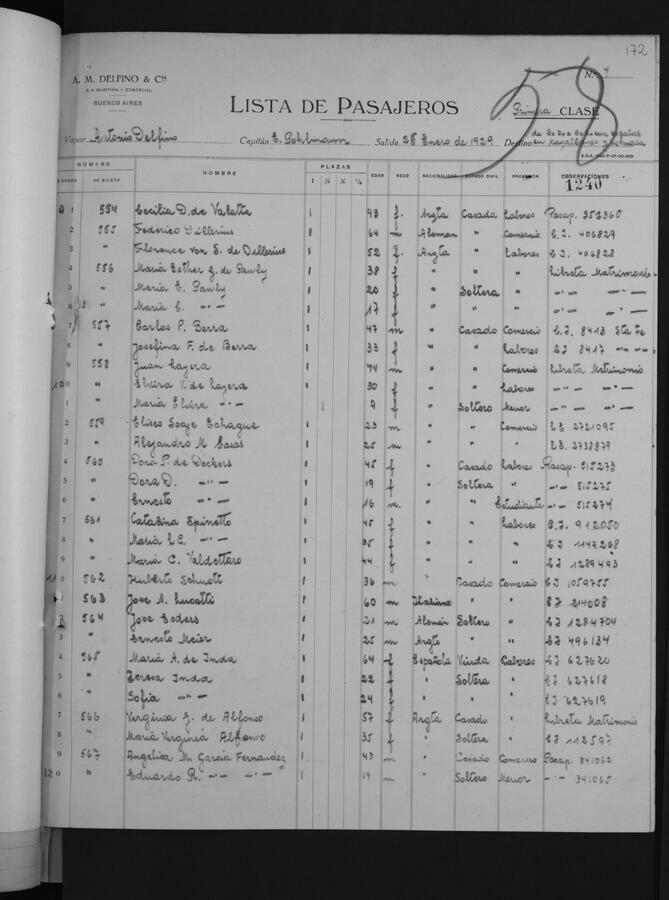 172
A. M. DELFINO & Cía
S. A. MARÍTIMA Y COMERCIAL
BUENOS AIRES
58
N.º 4
LISTA DE PASAJEROS
Primera CLASE
Vapor Antonio Delfino Capitán E. Pohlmann Salida 28 Enero de 1929 Destino
NÚMERO
DE ORDEN DE BOLETO NOMBRE PLAZAS EDAD SEXO NACIONALIDAD ESTADO CIVIL PROFESIÓN OBSERVACIONES
1 ½ ¼ 1240
1 554 Cecilia D. de Valatta 1 43 f. Argta Casada Labores Pasap. 353360
2 555 Federico Dillerius 1 64 m Aleman " Comercio C.I. 406829
3 " Florence von S. de Dillerius 1 52 f. Argta " Labores C.I. 406828
4 556 Maria Esther G. de Pawly 1 38 f " " " Libreta Matrimonio
5 " Maria E. Pawly 1 20 f " Soltera " -"- -"-
6 " Maria C. -"- 1 17 f " " " -"- -"-
7 557 Carlos P. Berra 1 47 m " Casado Comercio C.I. 8413 Sta Fe
8 " Josefina F. de Berra 1 33 f " " Labores C.I 8417 -"-
9 558 Juan Layera 1 44 m " " Comercio Libreta Matrimonio
10 " Elvira V. de Layera 1 30 f " " Labores -"- -"-
1 " Maria Elvira -"- 9 f " Soltero Menor -"- -"-
2 559 Eliseo Soaje Echague 1 23 m " " Comercio L.E. 2721095
3 " Alejandro M. Casas 1 25 m " " " L.E. 2732879
4 560 Dora P. de Deckers 1 45 f " Casado Labores Pasap. 515273
5 " Dora D. -"- 1 19 f " Soltera " -"- 515275
6 " Ernesto -"- 1 16 m. " " Estudiante -"- 515274
7 561 Catalina Spinetto 1 45 f " " Labores C.I. 912050
8 " Maria L.C. -"- 1 35 f " " " C.I 1147268
9 " Maria C. Valdettaro 1 44 f " " " C.I 1289493
0 562 Huberto Schmidt 1 36 m " Casado Comercio C.I 1059755
563 Jose A. Lucatti 1 60 m Italiano " " C.I 214008
2 564 Jose Esders 1 21 m Alemán Soltero " C.I 1284704
3 " Ernesto Meier 1 25 m Argto " " C.I 496134
4 565 Maria A. de Inda 1 64 f Española Viuda Labores C.I 627620
5 " Teresa Inda 1 22 f " Soltera " C.I 627618
6 " Sofia -"- 1 24 f " " " C.I 627619
7 566 Virginia G. de Alfonso 1 57 f Argta Casado " Libreta Matrimonio
8 " Maria Virginia Alfonso 1 35 f " Soltera " C.I 112597
9 567 Angelica M. Garcia Fernandez 1 43 m " Casado Comercio Pasap. 341062
120 " Eduardo R. -"- -"- 1 14 m " Soltero Menor -"- 341065